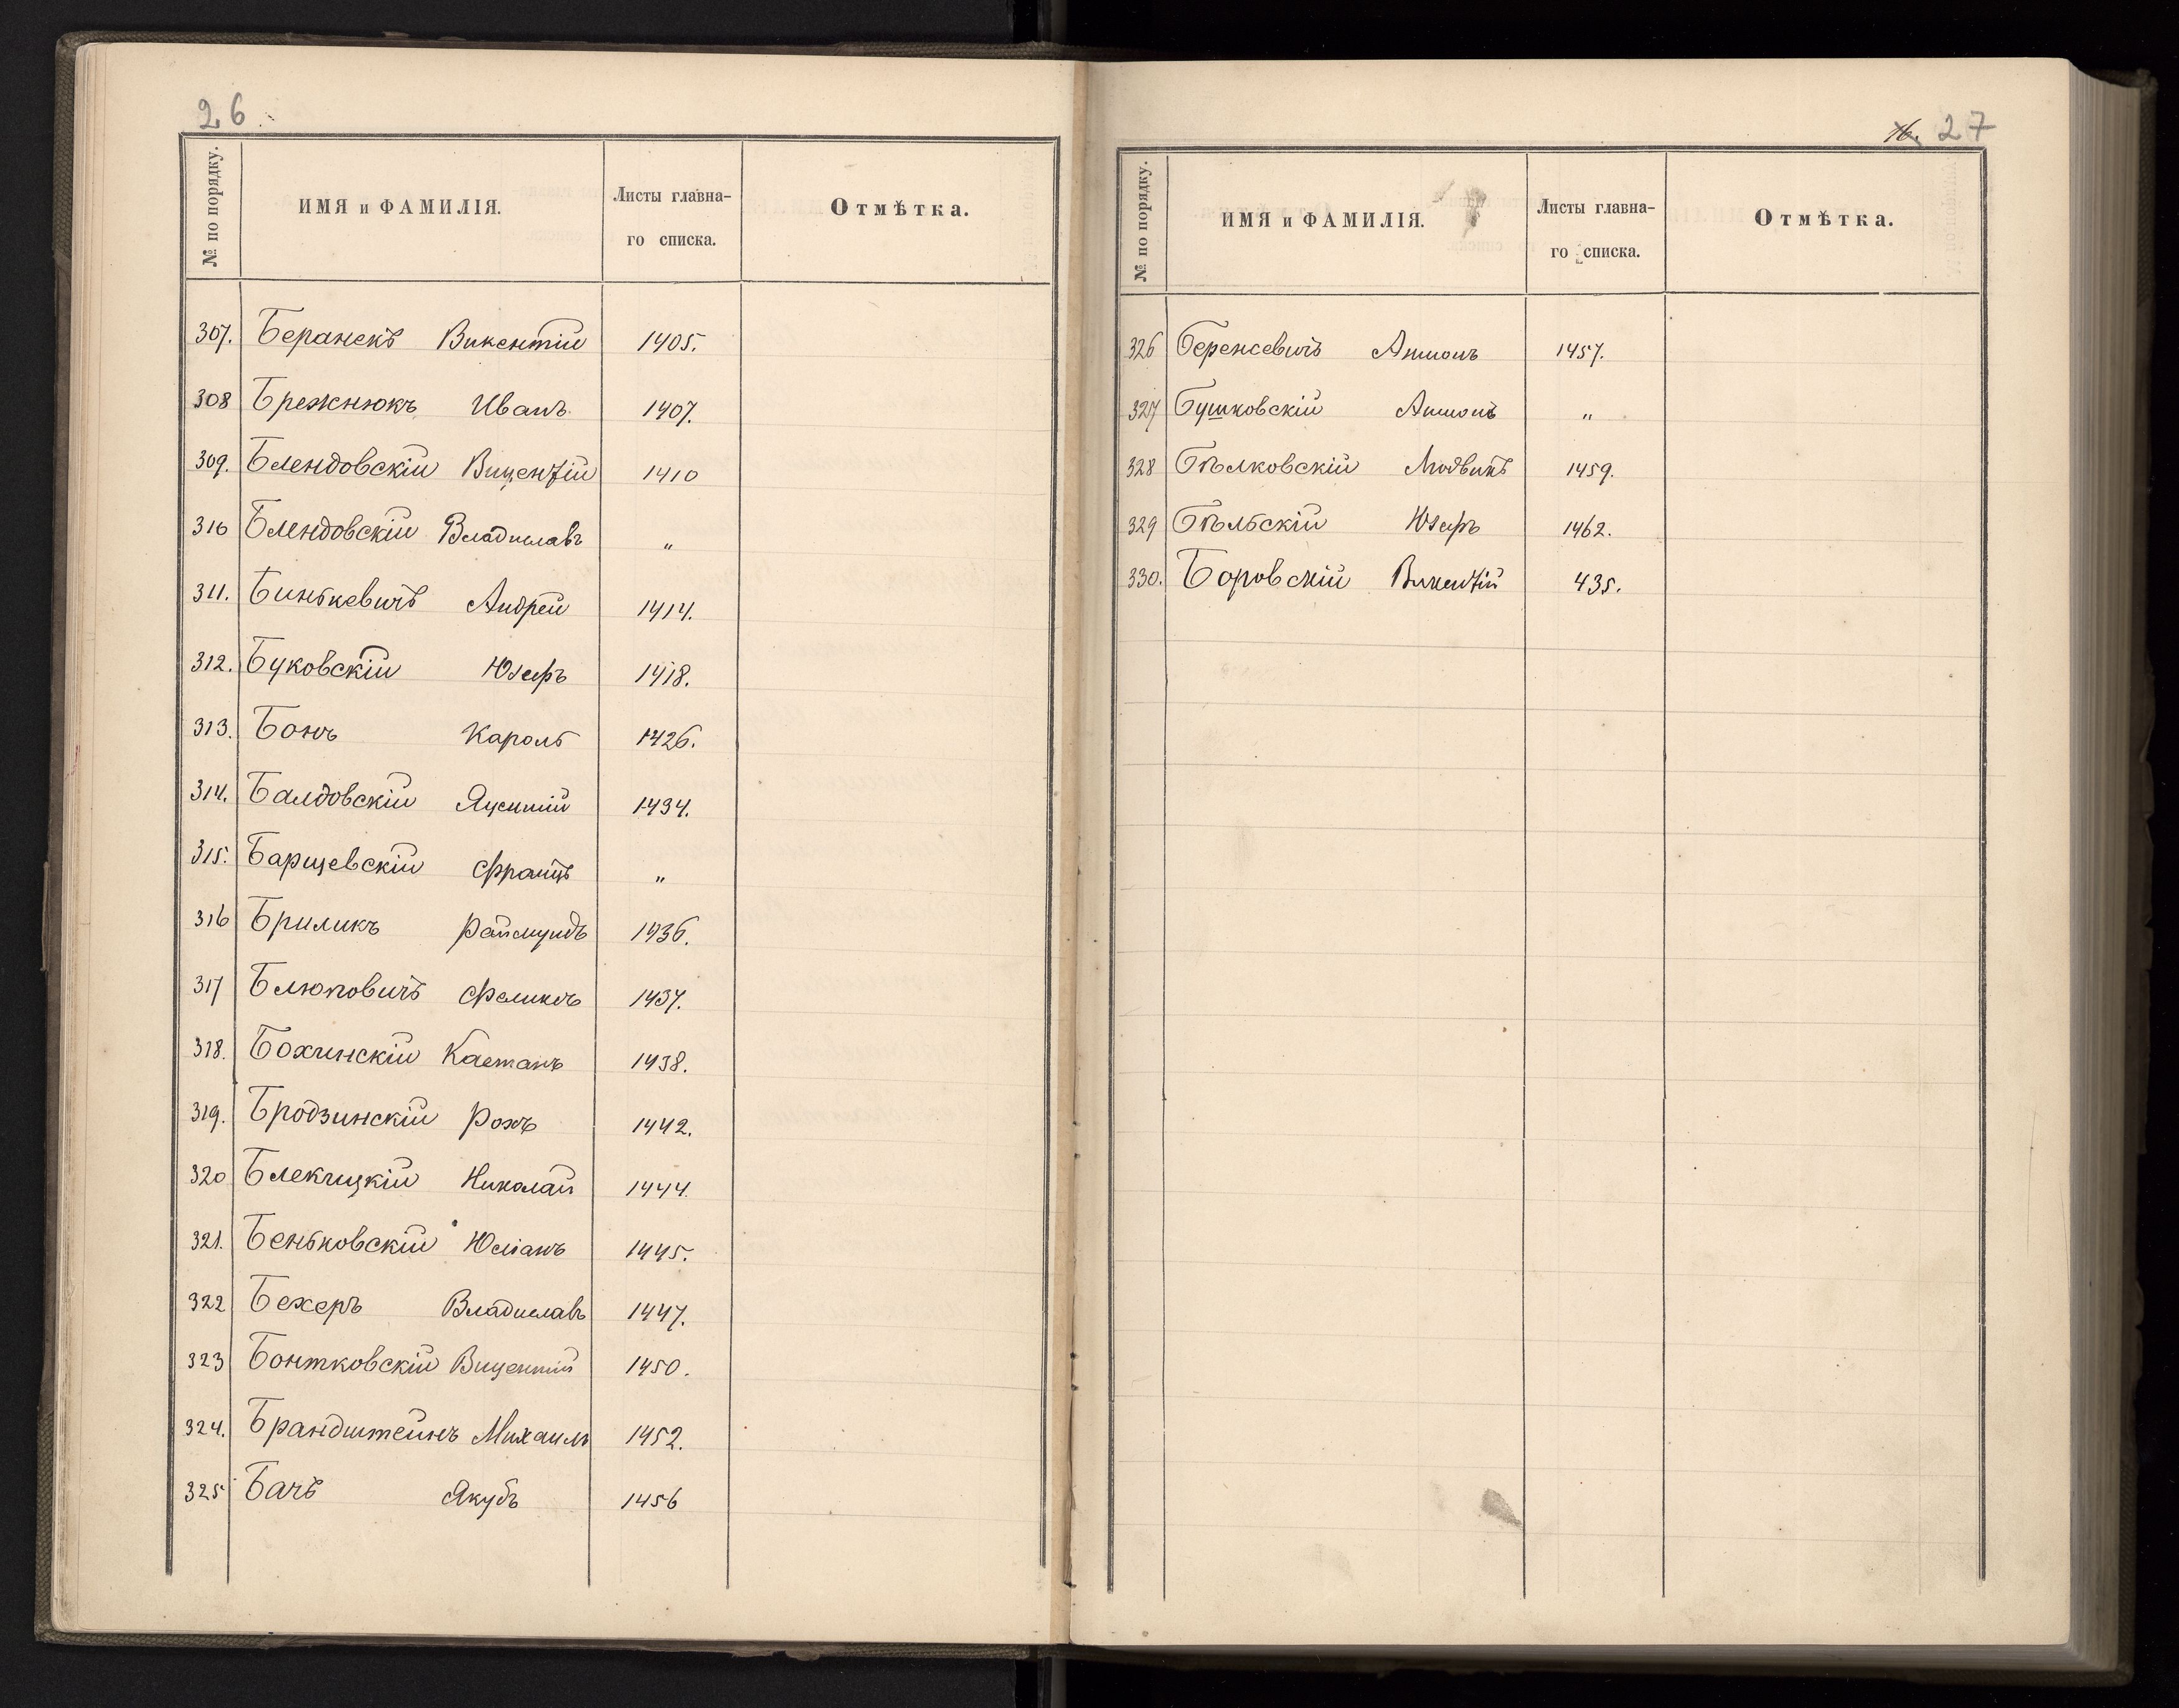 26
№ по порядку. ИМЯ и ФАМИЛІЯ. Листы главна-го списка. Отмѣтка.
307. Беранекъ Викентій 1405.
308 Брежнюкъ Иванъ 1407.
309. Блендовскій Вицентій 1410
310 Блендовскій Владиславъ „
311. Бинькевичъ Андрей 1414.
312. Буковскій Юзефъ 1418.
313. Бонъ Кароль 1426.
314. Балдовскій Яцентій 1434.
315. Барщевскій Францъ „
316 Бриликъ Раймундъ 1436.
317 Блюповичъ Феликсъ 1437.
318. Бохинскій Каетанъ 1438.
319. Бродзинскій Рохъ 1442.
320 Блекицкій Николай 1444.
321. Беньковскій Юліанъ 1445.
322 Бехеръ Владиславъ 1447.
323 Бонтковскій Вицентій 1450.
324. Брандштейнъ Михаилъ 1452.
325 Бачъ Якубъ 1456
16. 27
№ по порядку. ИМЯ и ФАМИЛІЯ. Листы главна-го списка. Отмѣтка.
326 Беренсевичъ Антонъ 1457.
327 Бушковскій Антонъ „
328 Бѣлковскій Людвикъ 1459.
329 Бѣльскій Юзефъ 1462.
330. Боровскій Викентій 435.